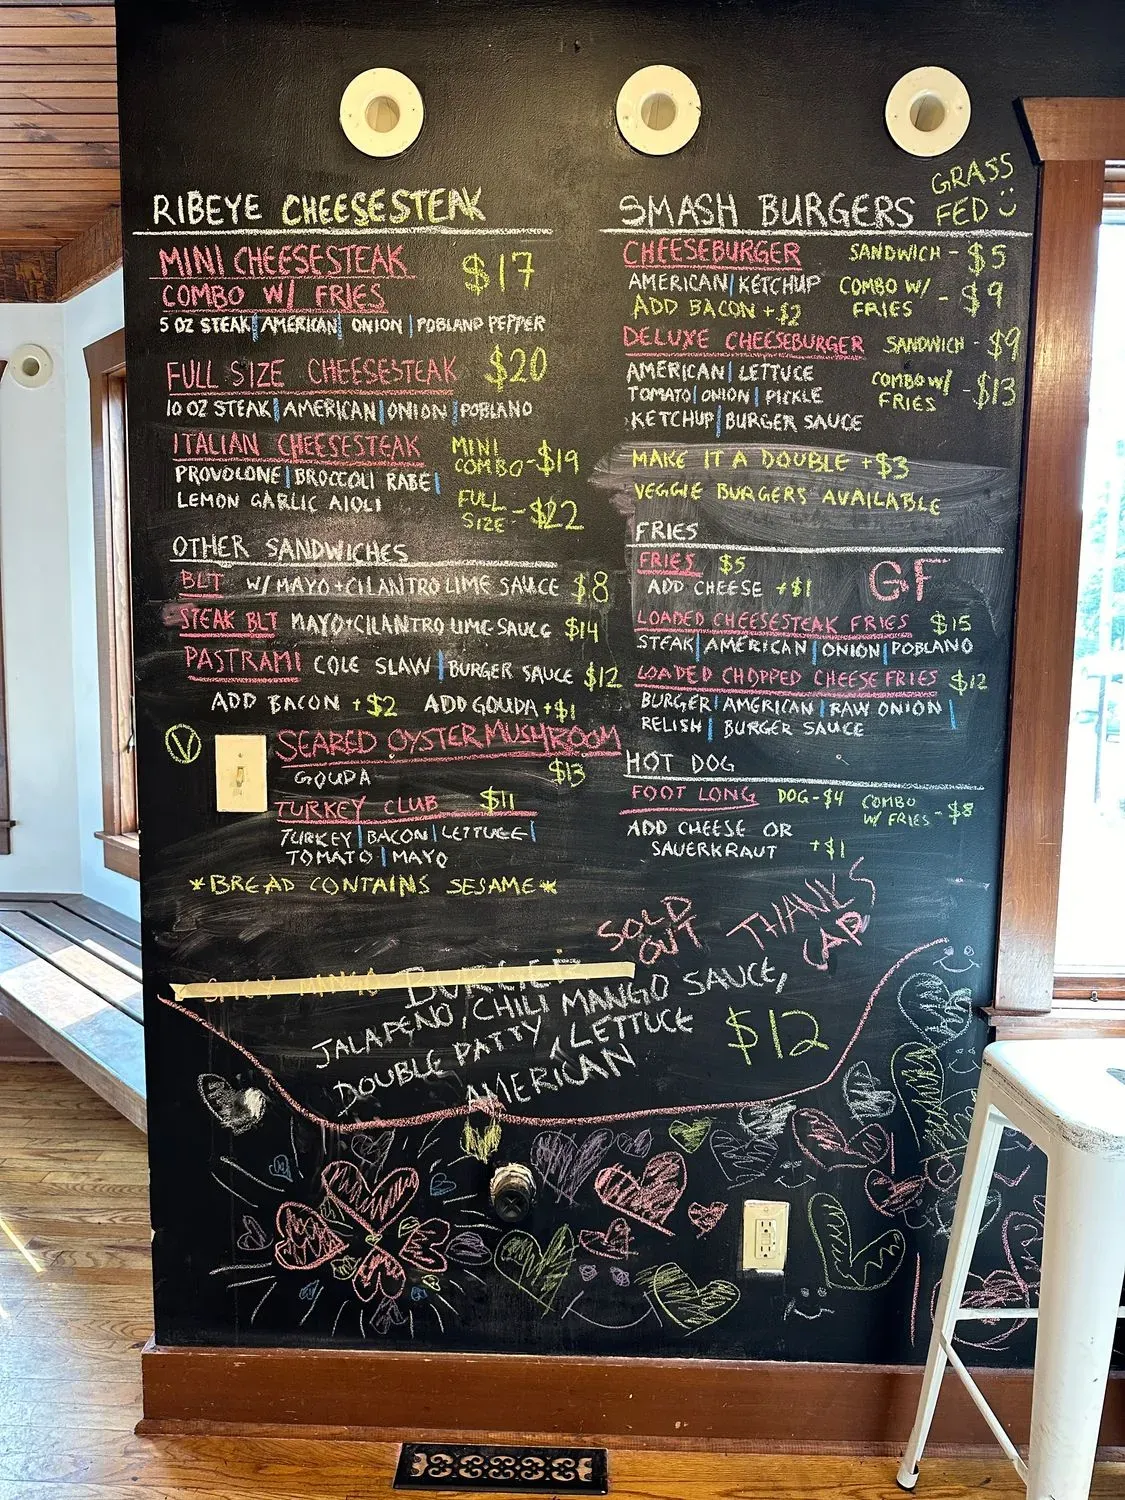 RIBEYE CHEESESTEAK
MINI CHEESESTEAK
COMBO W/ FRIES
$17
5 OZ STEAK | AMERICAN | ONION | POBLANO PEPPER
FULL SIZE CHEESESTEAK $20
10 OZ STEAK | AMERICAN | ONION | POBLANO
ITALIAN CHEESESTEAK
PROVOLONE | BROCCOLI RABE |
LEMON GARLIC AIOLI
MINI
COMBO - $19
FULL
SIZE - $22
OTHER SANDWICHES
BLT W/ MAYO + CILANTRO LIME SAUCE $8
STEAK BLT MAYO + CILANTRO LIME SAUCE $14
PASTRAMI COLE SLAW | BURGER SAUCE $12
ADD BACON + $2 ADD GOUDA + $1
V SEARED OYSTER MUSHROOM
GOUDA $13
TURKEY CLUB $11
TURKEY | BACON | LETTUCE |
TOMATO | MAYO
*BREAD CONTAINS SESAME*
SMASH BURGERS
GRASS
FED
CHEESEBURGER SANDWICH - $5
AMERICAN | KETCHUP
ADD BACON + $2
COMBO W/
FRIES - $9
DELUXE CHEESEBURGER SANDWICH - $9
AMERICAN | LETTUCE
TOMATO | ONION | PICKLE
KETCHUP | BURGER SAUCE
COMBO W/
FRIES - $13
MAKE IT A DOUBLE + $3
VEGGIE BURGERS AVAILABLE
FRIES
FRIES $5
ADD CHEESE + $1
GF
LOADED CHEESESTEAK FRIES $15
STEAK | AMERICAN | ONION | POBLANO
LOADED CHOPPED CHEESE FRIES $12
BURGER | AMERICAN | RAW ONION |
RELISH | BURGER SAUCE
HOT DOG
FOOT LONG DOG - $4
COMBO
W/ FRIES - $8
ADD CHEESE OR
SAUERKRAUT + $1
SOLD
OUT
THANKS
CAP
SPICY MANGO BURGER
JALAPEÑO, CHILI MANGO SAUCE,
DOUBLE PATTY, LETTUCE
AMERICAN
$12